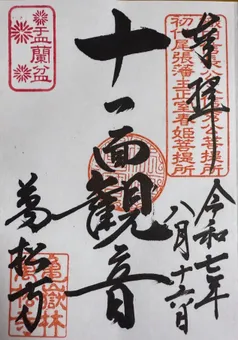 奉拝
初代尾張藩主正室春姫菩提所
令和七年
八月十六日
十一面観音
盂蘭盆
萬松寺
亀嶽林